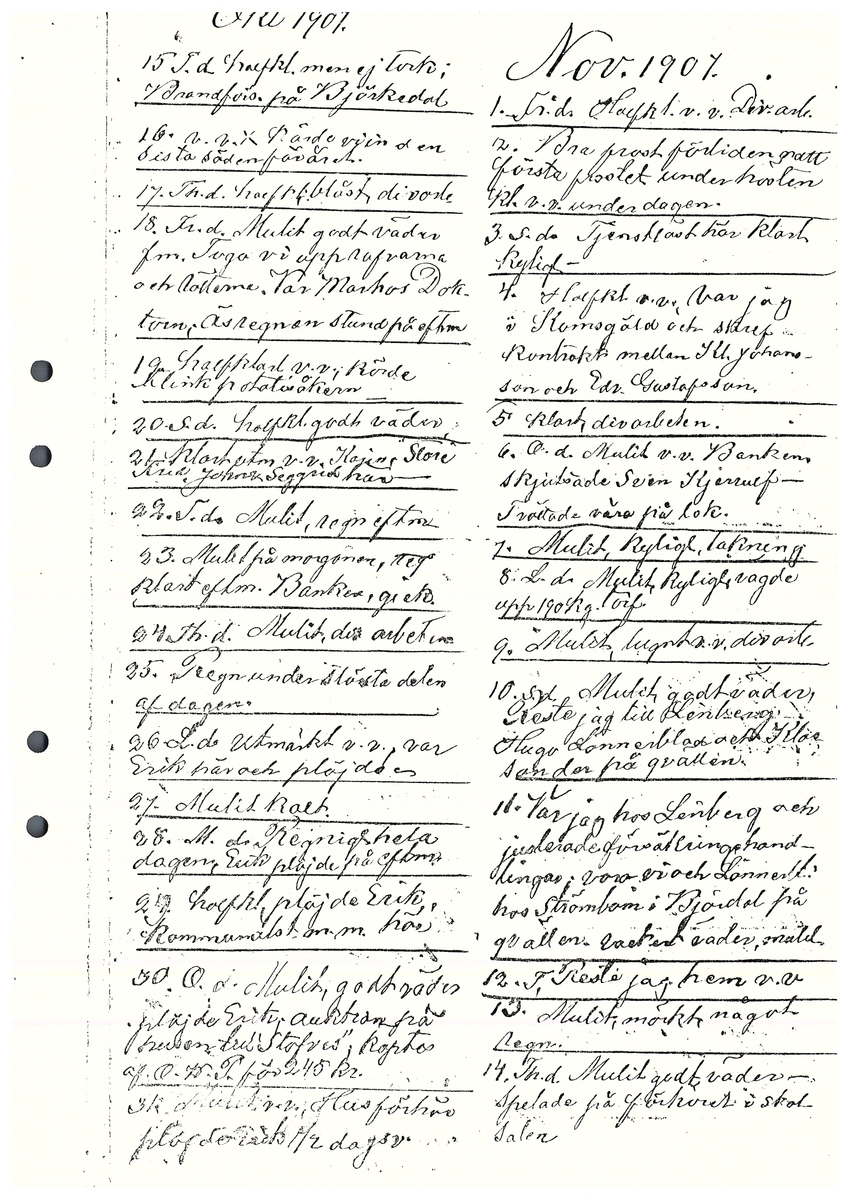 Okt 1907.
15 T.d. halfkl. men ej tork;
Brandförs. på Björkedal
16. v. v. Kärde vi in den
sista säden för året.
17. Th.d. halfkl. blåst, div ode
18. Fr.d. Mulit godt väder
fm. Togo vi upp rofvorna
och rötterna. Var Markos Dok-
torn, Ås regnan stund på eftm
19. halfklart v.v.; körde
potatisåkern
20 S.d. halfkl. godt väder,
21. Klart utm v.v. Store
John Seggrid här
22. T.d. Mulit, regn eftm
23. Mulit på morgonen, reg
klart eftm. Banken, gick.
24. Th.d. Mulit, div arbeten
25. Regn under största delen
af dagen.
26 L.d. Utmärkt v.v., var
Erik här och plöjde
27. Mulit kallt.
28. M.d. Regnigt hela
dagen, Erik plöjde på eftm.
29. halfkl, plöjde Erik,
Kommunalst m.m. hos
30. O.d. Mulit, godt väder
plöjde Erik, auktion på
"Stofves"; köptes
af O. P. för 245 kr.
31. Mulit v.v., Husförhör
plöjde Erik 1/2 dagsv.
Nov. 1907.
1. Fr.d. Halfkl. v.v. Div. arb.
2. Bra frost förliden natt
första frostet under hösten
kl. v.v. under dagen.
3. S.d. Tjenstlöst här klart
kyligt
4. Halfkl. v.v., var jag
i Komsgöld och skref
kontrakt mellan Kl. Johans-
son och Edv. Gustafsson.
5 Klart, div arbeten.
6. O.d. Mulit v.v. Banken
skjutsade Sven Kjerrulf
Tröttade våra på lok.
7. Mulit, kyligt, takning
8. L.d. Mulit, kyligt, vägde
upp 190 kg. torf
9. Mulit, lugnt v.v. div arb.
10. S.d. Mulit, godt väder,
Reste jag till Lenberg.
Hugo Lönnerblad och Klas
Sander på qvällen.
11. Var jag hos Lenberg och
justerade försäkringshand-
lingar; voro vi och Lönnerbl.
hos Strömbom i Björdal på
qvällen. vackert väder, mild
12. T. Reste jag hem v.v
13. Mulit, mörkt, något
Regn.
14. Th.d. Mulit godt väder
Spelade på förhöret i skol
salen